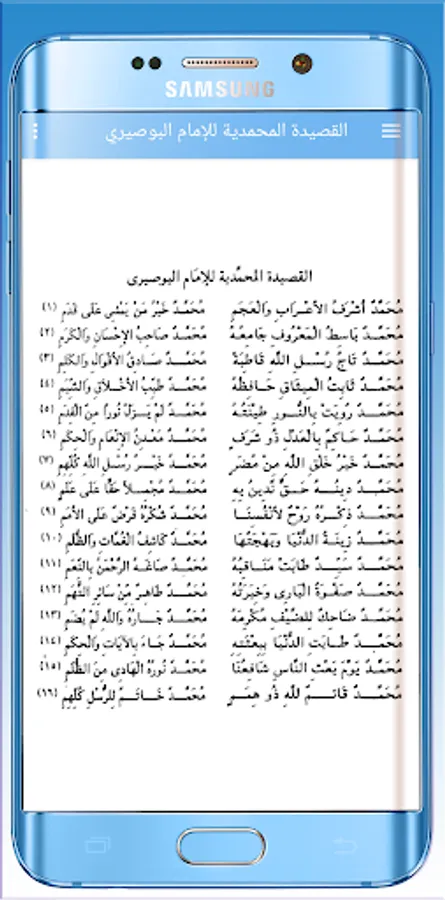 SAMSUNG
القصيدة المحمدية للإمام البوصيري
القصيدة المحمّدية للإمَام البوصيرى
مُحَمَّدٌ أشْرَفُ الأعْرَابِ وَالْعَجَمِ مُحَمَّدٌ خَيْرُ مَنْ يَمْشِى عَلَى قَدَمِ (١)
مُحَمَّدٌ بَاسِطُ الْمَعْرُوفِ جَامِعُهُ مُحَمَّدٌ صَاحِبُ الإحْسَانِ وَالْكَرَمِ (٢)
مُحَمَّدٌ تَاجُ رُسْلِ اللَّهِ قَاطِبَةً مُحَمَّدٌ صَادِقُ الأقْوَالِ وَالْكَلِمِ (٣)
مُحَمَّدٌ ثَابِتُ الْمِيثَاقِ حَافِظُهُ مُحَمَّدٌ طَيِّبُ الأخْلَاقِ وَالشِّيَمِ (٤)
مُحَمَّدٌ رُوِيَتْ بِالنُّورِ طِينَتُهُ مُحَمَّدٌ لَمْ يَزَلْ نُورًا مِنَ الْقِدَمِ (٥)
مُحَمَّدٌ حَاكِمٌ بِالْعَدْلِ ذُو شَرَفٍ مُحَمَّدٌ مَعْدِنُ الإنْعَامِ وَالْحِكَمِ (٦)
مُحَمَّدٌ خَيْرُ خَلْقِ اللَّهِ مِنْ مُضَرٍ مُحَمَّدٌ خَيْرُ رُسْلِ اللَّهِ كُلِّهِمِ (٧)
مُحَمَّدٌ دِينُهُ حَقٌّ نَدِينُ بِهِ مُحَمَّدٌ مُجْمِلاً حَقًّا عَلَى عَلَمِ (٨)
مُحَمَّدٌ ذِكْرُهُ رَوْحٌ لأنْفُسِنَا مُحَمَّدٌ شُكْرُهُ فَرْضٌ عَلَى الأمَمِ (٩)
مُحَمَّدٌ زِينَةُ الدُّنْيَا وَبَهْجَتُهَا مُحَمَّدٌ كَاشِفُ الْغُمَّاتِ وَالظُّلَمِ (١٠)
مُحَمَّدٌ سَيِّدٌ طَابَتْ مَنَاقِبُهُ مُحَمَّدٌ صَاغَهُ الرَّحْمٰنُ بِالنِّعَمِ (١١)
مُحَمَّدٌ صَفْوَةُ الْبَارِى وَخِيرَتُهُ مُحَمَّدٌ طَاهِرٌ مِنْ سَائِرِ التُّهَمِ (١٢)
مُحَمَّدٌ ضَاحِكٌ لِلضَّيْفِ مُكْرِمُهُ مُحَمَّدٌ جَارُهُ وَاللَّهِ لَمْ يُضَمِ (١٣)
مُحَمَّدٌ طَابَتِ الدُّنْيَا بِبِعْثَتِهِ مُحَمَّدٌ جَاءَ بِالآيَاتِ وَالْحِكَمِ (١٤)
مُحَمَّدٌ يَوْمَ بَعْثِ النَّاسِ شَافِعُنَا مُحَمَّدٌ نُورُهُ الْهَادِى مِنَ الظُّلَمِ (١٥)
مُحَمَّدٌ قَائِمٌ لِلَّهِ ذُو هِمَمٍ مُحَمَّدٌ خَاتِمٌ لِلرُّسْلِ كُلِّهِمِ (١٦)